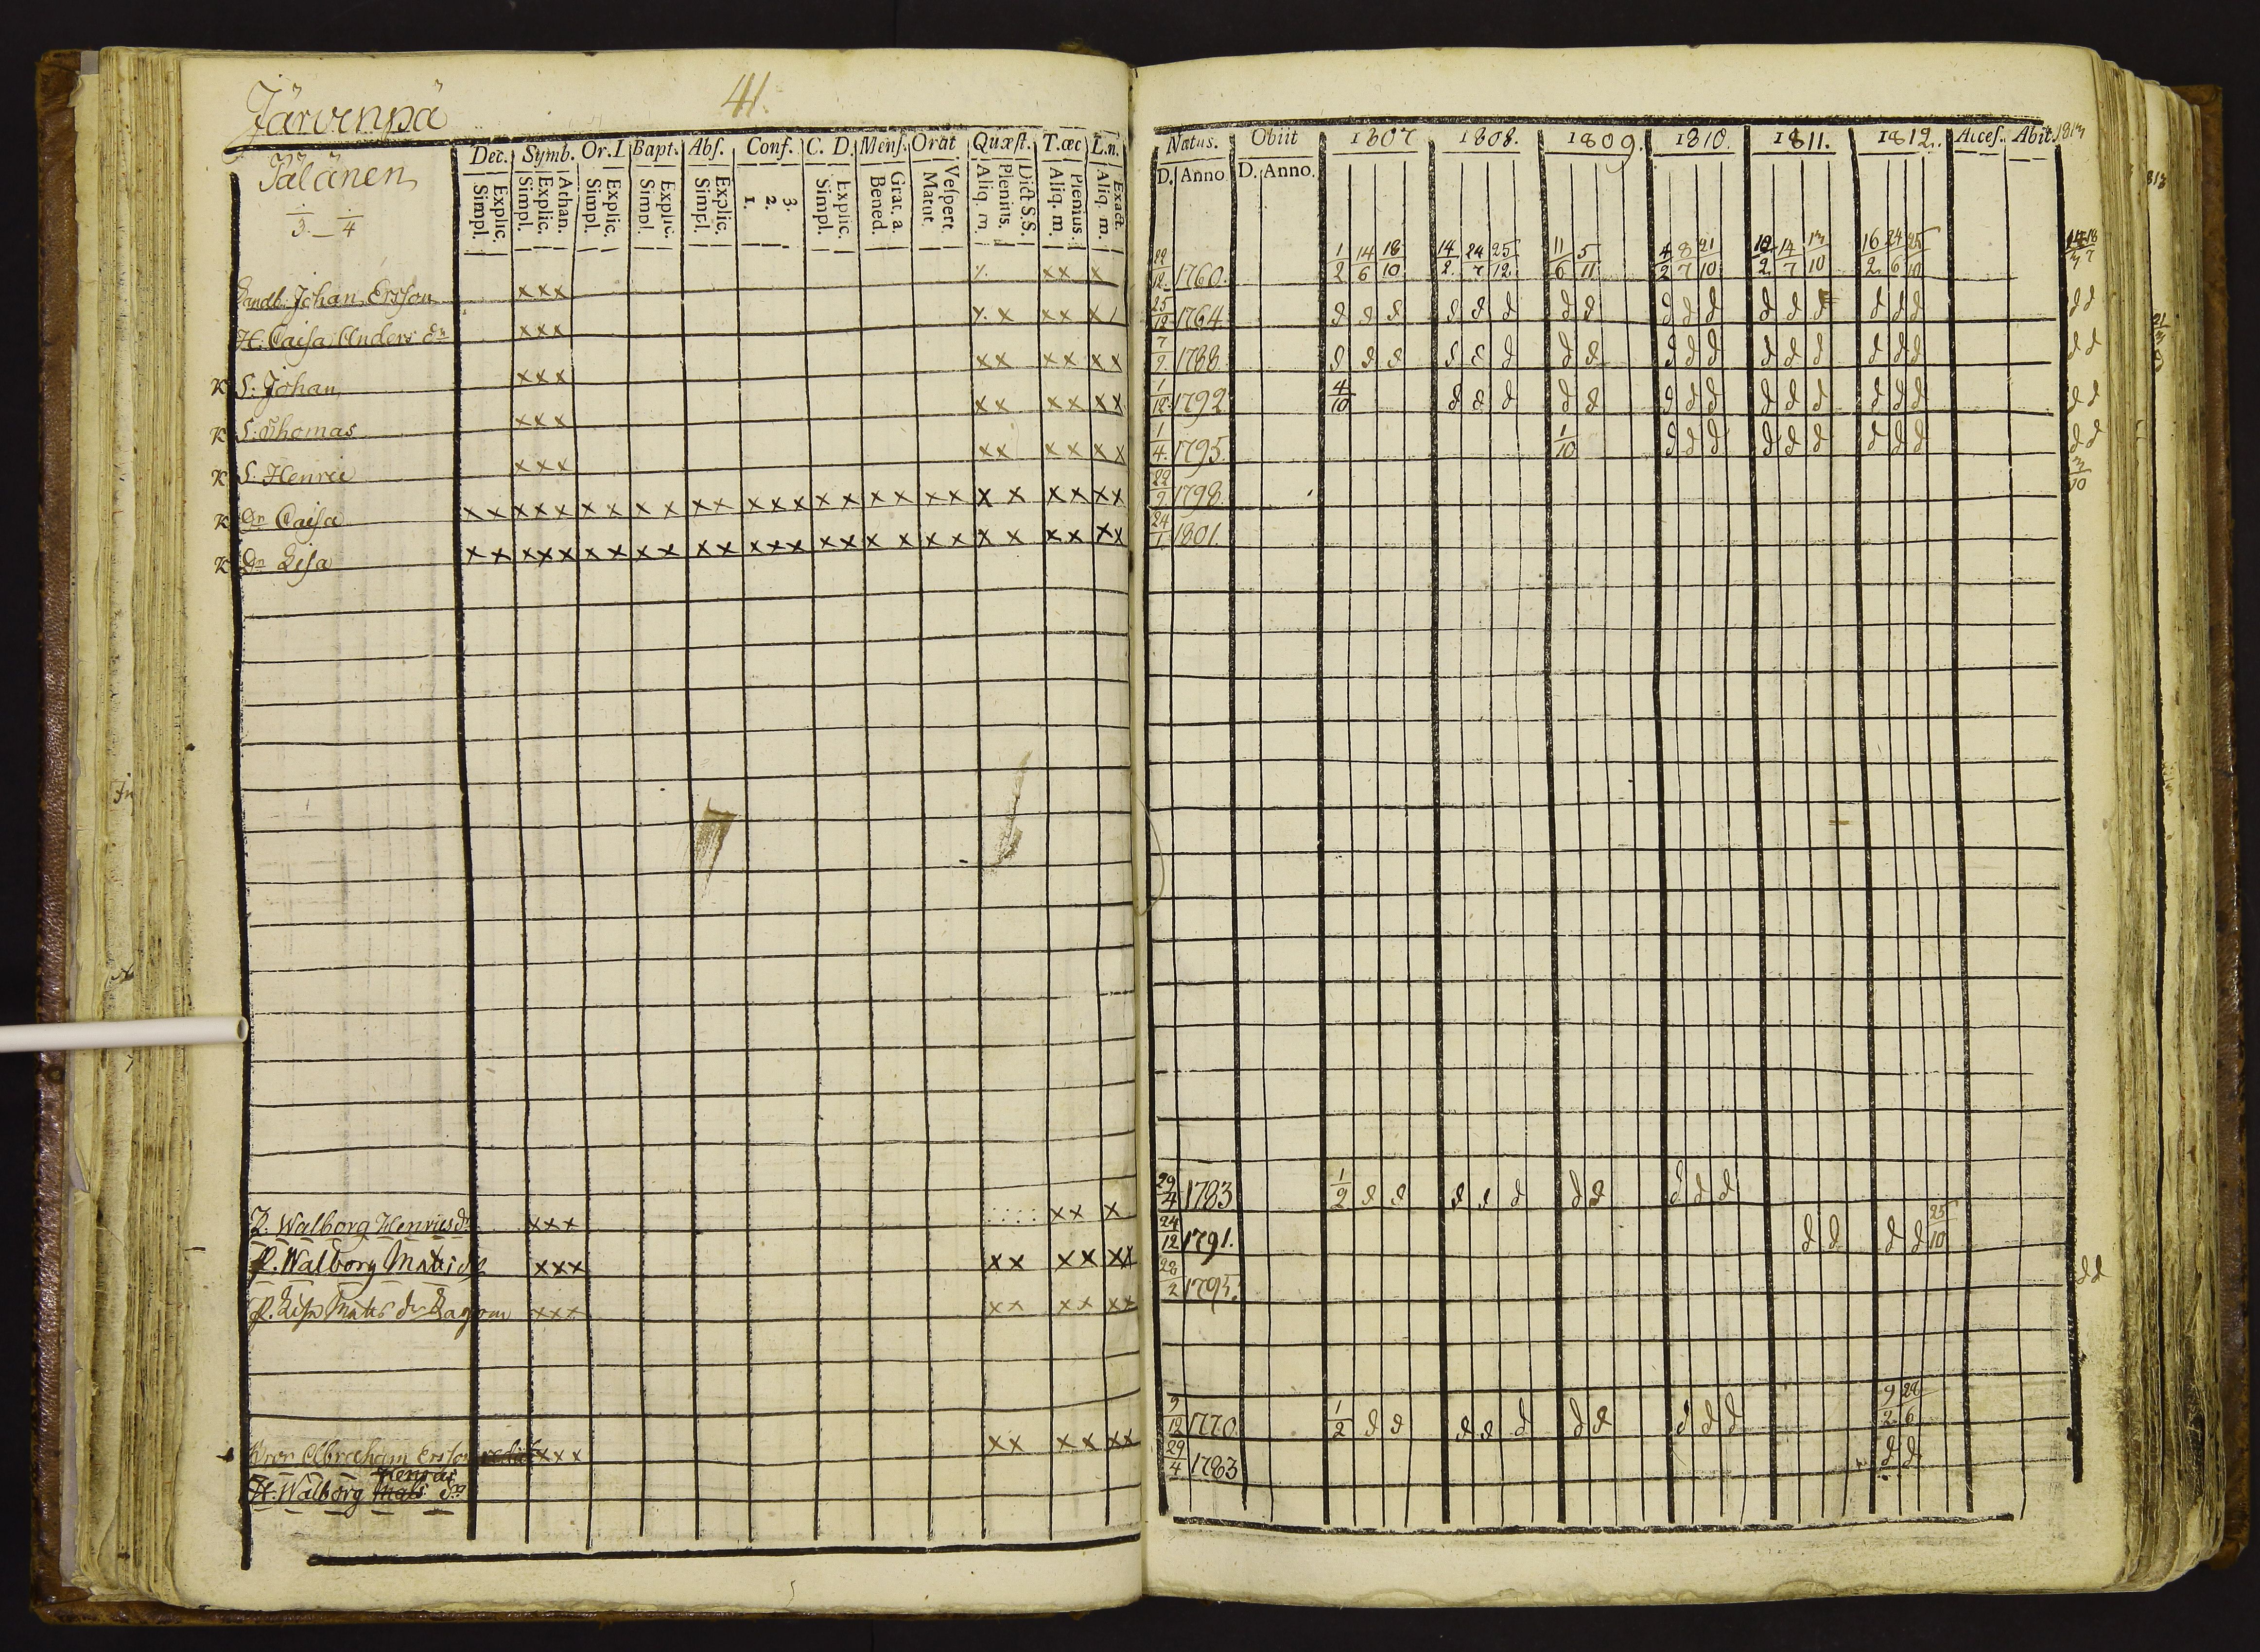 Järvenpä
41.
Jälänen
3. — 4
Dec. Symb. Or. I. Bapt. Abſ. Conf. C. D. Menſ. Orat Quæſt. T. œc L. n.
Simpl. Explic. Simpl. Explic. Athan. Simpl. Explic. Simpl. Explic. Simpl. Explic. 1. 2. 3. Simpl. Explic. Bened. Grat. a. Matut. Veſpert. Aliq. m. Plenius. Dict. S.S. Aliq. m. Plenius. Aliq. m. Exact.
Landb. Johan Ersson xxx xx x
H. Caisa Anders dr xxx x xx x
K S. Johan xxx xx xx xx
K S. Thomas xxx xx xx xx
K S. Henric xxx xx xx xx
K Dr Caisa xx xxx xx xx xx xxx xx xx xx xx xx xx
K Dr Lisa xx xxx xx xx xx xxx xx xx xx xx xx xx
P. Walborg Henrics dr xxx xx x
P. Walborg Mats dr xxx xx xx xx
P. Lisa Mats dr xxx xx xx xx
Abraham Ersson xxx xx xx xx
Henrics
H. Walborg Mats dr
Natus. Obiit 1807 1808. 1809. 1810. 1811. 1812. Acceſ. Abit. 1813
D. Anno D. Anno.
22/12 1760. 1/2 14/6 18/10 14/2 24/7 25/12 11/6 5/11 4/2 8/7 21/10 12/2 14/7 13/10 16/2 24/6 25/10
25/12 1764 d d d d d d d d d d d d d d d d d d d
7/9 1788. d d d d d d d d d d d d d d d d d d d
1/12 1792 4/10 d d d d d d d d d d d d d d d d
1/4 1795. 1/10 d d d d d d d d d d d
22/9 1798. 3/10
24/1 1801.
29/4 1783 1/2 d d d d d d d d d d
24/12 1791. d d d d 25/10
28/2 1795. d d
9/2 28/6
9/12 1770 1/2 d d d d d d d d d d
29/4 1783 d d